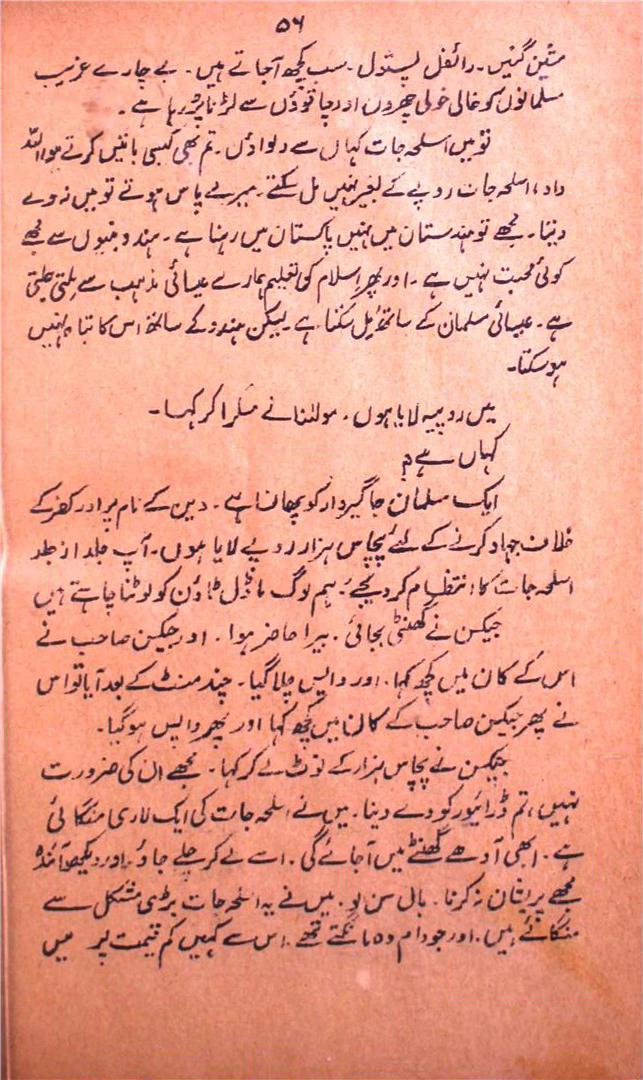 ۵۶
مشین گنیں۔ رائفل پستول۔ سب کچھ آجاتے ہیں۔ بے چارے غریب
مسلمانوں کو خالی خولی چھروں اور چاقوؤں سے لڑنا پڑ رہا ہے۔
تو میں اسلحہ جات کہاں سے دلواؤں۔ تم بھی کیسی باتیں کرتے ہو اللہ
داد، اسلحہ جات روپے کے بغیر نہیں مل سکتے۔ میرے پاس ہوتے تو میں نہ دے
دیتا۔ مجھے تو ہندستان میں نہیں پاکستان میں رہنا ہے۔ ہندو بنیوں سے مجھے
کوئی محبت نہیں ہے۔ اور پھر اسلام کی تعلیم ہمارے عیسائی مذہب سے ملتی جلتی
ہے۔ عیسائی مسلمان کے ساتھ مل سکتا ہے لیکن ہندو کے ساتھ اس کا نباہ نہیں
ہوسکتا۔
میں روپیہ لایا ہوں۔ مولٰنا نے مسکرا کر کہا۔
کہاں ہے؟
ایک مسلمان جاگیردار کو پھانسا ہے۔ دین کے نام پر اور کفر کے
خلاف جہاد کرنے کے لئے پچاس ہزار روپے لایا ہوں۔ آپ جلد از جلد
اسلحہ جات کا انتظام کر دیجئے۔ ہم لوگ ماڈل ٹاؤن کو لوٹنا چاہتے ہیں
جیکسن نے گھنٹی بجائی۔ بیرا حاضر ہوا۔ اور جیکسن صاحب نے
اس کے کان میں کچھ کہا۔ اور واپس چلا گیا۔ چند منٹ کے بعد آیا تو اس
نے پھر جیکسن صاحب کے کان میں کچھ کہا اور پھر واپس ہوگیا۔
جیکسن نے پچاس ہزار کے نوٹ لے کر کہا۔ مجھے ان کی ضرورت
نہیں، تم ڈرائیور کو دے دینا۔ میں نے اسلحہ جات کی ایک لاری منگائی
ہے۔ ابھی آدھے گھنٹے میں آجائے گی۔ اسے لے کر چلے جاؤ۔ اور دیکھو آئندہ
مجھے پریشان نہ کرنا۔ ہاں سن لو۔ میں نے یہ اسلحہ جات بڑی مشکل سے
منگائے ہیں۔ اور جو دام وہ مانگتے تھے۔ اس سے کہیں کم قیمت پر میں